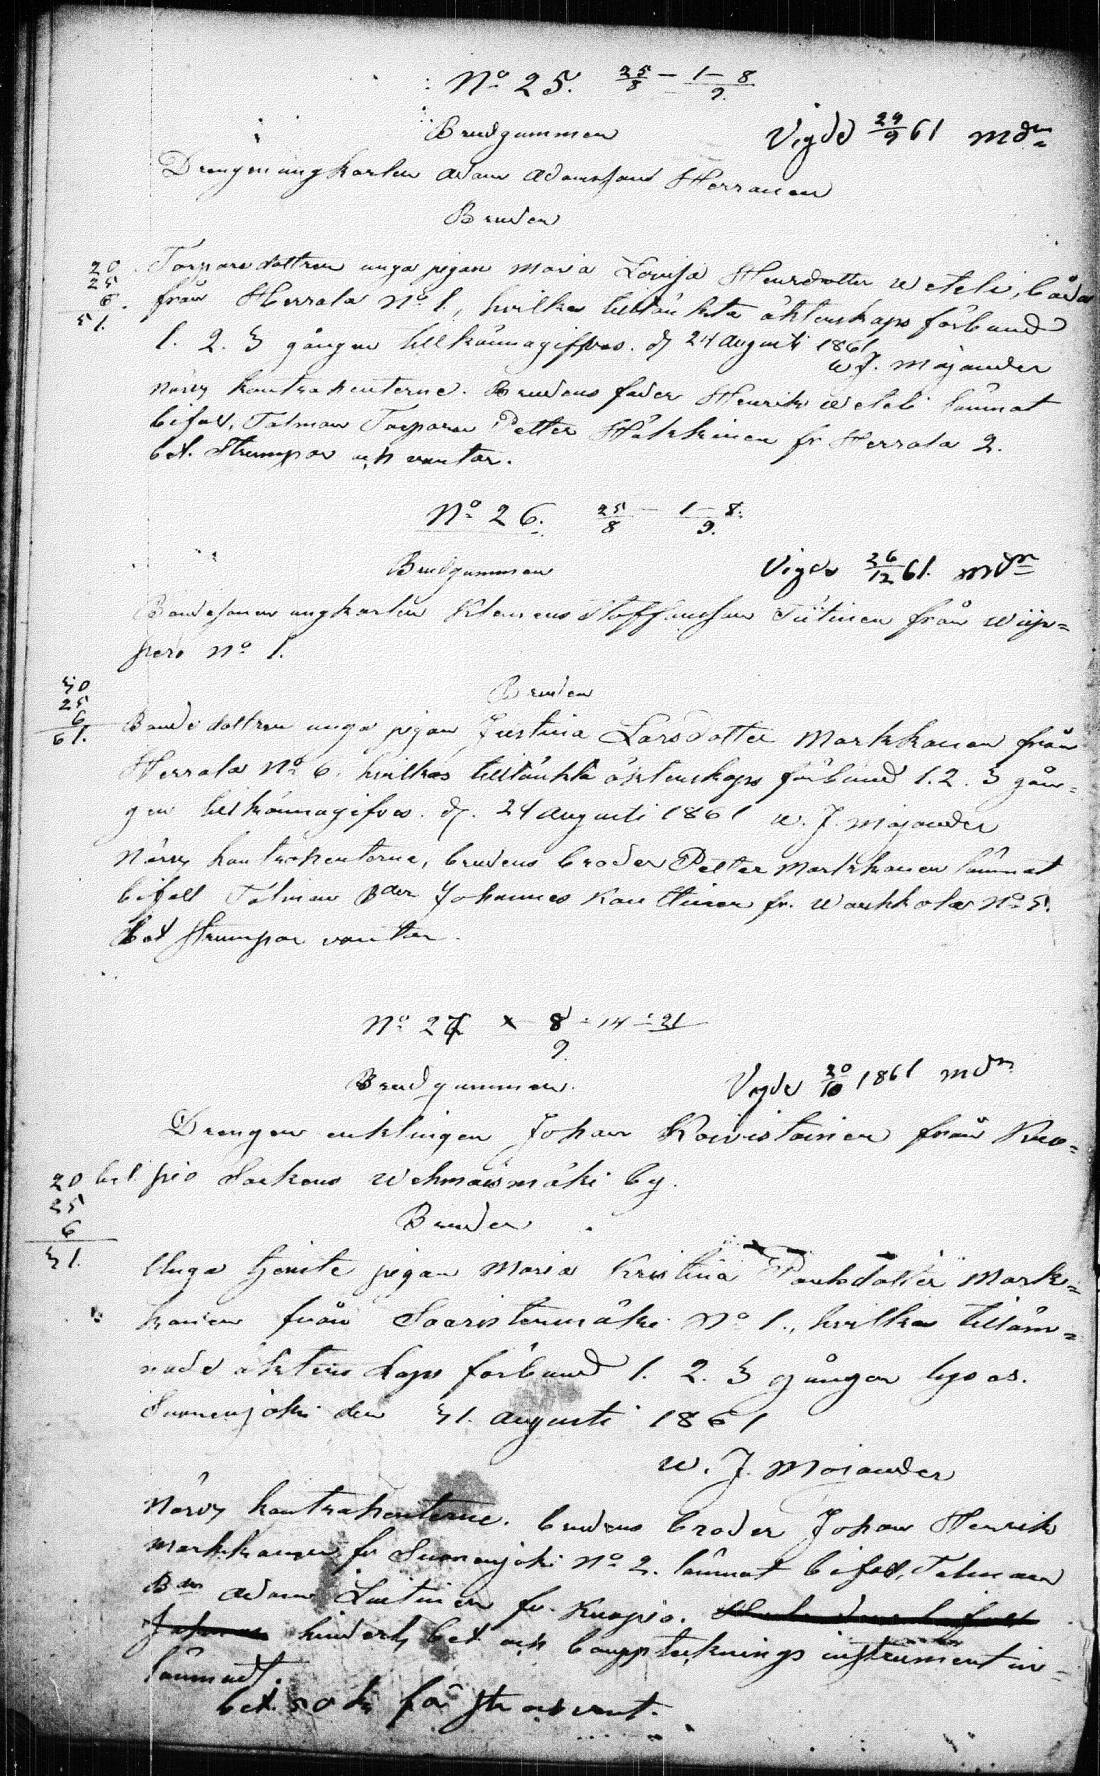 No 25. 25/8 – 1 – 8/9.
Brudgummen
Vigde 29/9 61 Mdr
Drengen ungkarlen Adam Adamsson Herranen
Bruden
20
25
6.
51.
Torparedottren unga pigan Maria Lovisa Henrsdotter Weteli, båda
från Herrala No 1., hvilkas tilltänkta äktenskaps förbund
1. 2. 3 gången tillkännagifves. d. 24 Augusti 1861
W. J. Mojander
Närv. kontrahenterne. Brudens fader Henrik Weteli lämnat
bifall, Talman Torparen Petter Häkkinen fr. Herrala 2.
bet. Strumpor och vantar.
No 26. 25/8 – 1 – 8/9.
Brudgummen
Vigde 26/12 61. Mdr
Bondesonen ungkarlen Klemens Staffansson Tiitinen från Wiip=
pero No 1.
30
25
6
61.
Bruden
Bondedottren unga pigan Justina Larsdotter Markkanen från
Herrala No 6. hvilkas tilltänkta äktenskaps förbund 1. 2. 3 gån=
gen tillkännagifves. d. 24 Augusti 1861 W. J. Mojander
Närv. kontrahenterne, brudens broder Petter Markkanen lämnat
bifall Talman Bden Johannes Kauttinen fr. Warkhola No 5.
bet strumpor vantar.
No 27 x 8 – 14 – 21
9.
Brudgummen.
Vigde 20/10 1861 Mdr
Drengen enklingen Johan Koivistoinen från Kuo=
20 bet pio Sorkons Wehmasmäki by.
25
6
51.
Bruden
Unga tjenste pigan Maria Kristina Paulsdotter Mark=
kanen från Saaristenmäki No 1., hvilkas tilläm=
nade äktenskaps förbund 1. 2. 3 gången lyses.
Suonenjoki den 31. Augusti 1861
W. J. Mojander
Närv. kontrahenterne. brudens broder Johan Henrik
Markkanen fr Suonenjoki No 2. lämnat bifall, Talman
Bden Adam Luttinen fr. Kuopio.
hinderl. bet och bouppteknings instrument in=
lämnadt.
bet. 50 k för str och vant.